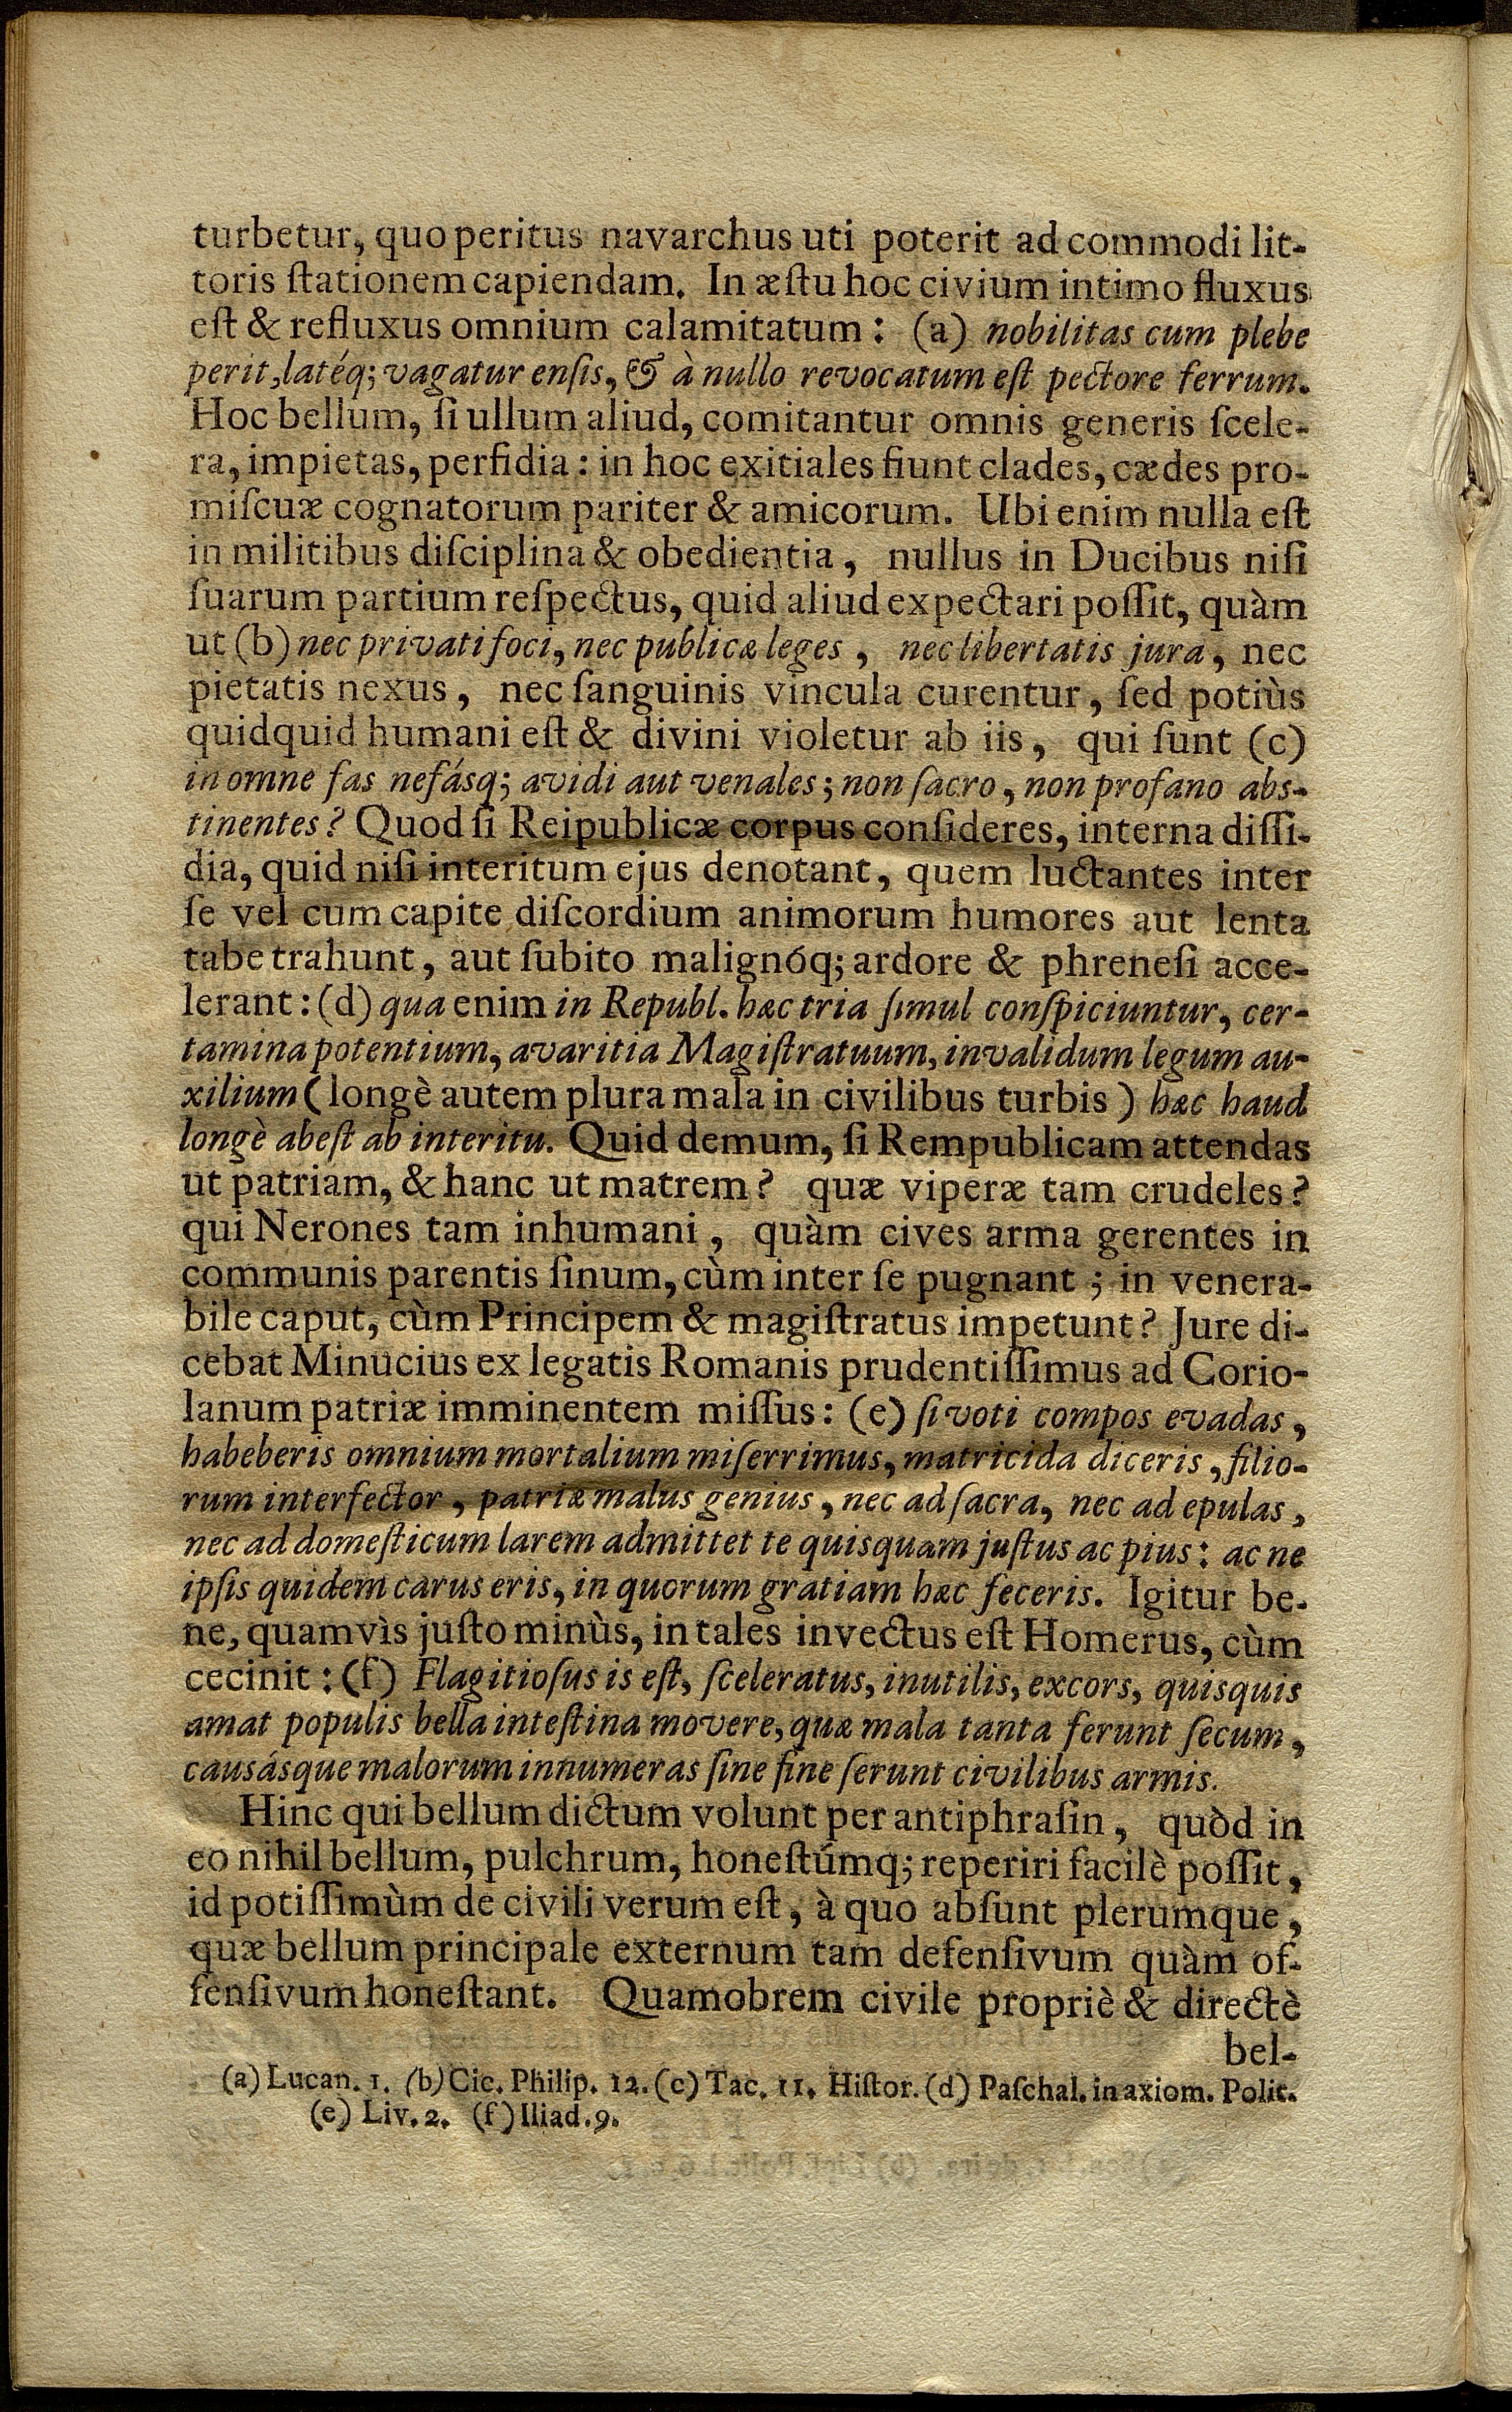 turbetur, quo peritus navarchus uti poterit ad commodi lit-
toris ſtationem capiendam. In æſtu hoc civium intimo fluxus
eſt & refluxus omnium calamitatum: (a) nobilitas cum plebe
perit, latéq; vagatur enſis, & à nullo revocatum eſt pectore ferrum.
Hoc bellum, ſi ullum aliud, comitantur omnis generis ſcele-
ra, impietas, perfidia: in hoc exitiales fiunt clades, cædes pro-
miſcuæ cognatorum pariter & amicorum. Ubi enim nulla eſt
in militibus diſciplina & obedientia, nullus in Ducibus niſi
ſuarum partium reſpectus, quid aliud expectari poſſit, quàm
ut (b) nec privati foci, nec publicæ leges, nec libertatis jura, nec
pietatis nexus, nec ſanguinis vincula curentur, ſed potiùs
quidquid humani eſt & divini violetur ab iis, qui ſunt (c)
in omne fas nefásq; avidi aut venales; non ſacro, non profano abs-
tinentes? Quod ſi Reipublicæ corpus conſideres, interna diſſi-
dia, quid niſi interitum ejus denotant, quem luctantes inter
ſe vel cum capite diſcordium animorum humores aut lenta
tabe trahunt, aut ſubito malignóq; ardore & phreneſi acce-
lerant: (d) qua enim in Republ. hæc tria ſimul conſpiciuntur, cer-
tamina potentium, avaritia Magiſtratuum, invalidum legum au-
xilium (longè autem plura mala in civilibus turbis) hæc haud
longè abeſt ab interitu. Quid demum, ſi Rempublicam attendas
ut patriam, & hanc ut matrem? quæ viperæ tam crudeles?
qui Nerones tam inhumani, quàm cives arma gerentes in
communis parentis ſinum, cùm inter ſe pugnant; in venera-
bile caput, cùm Principem & magiſtratus impetunt? Jure di-
cebat Minucius ex legatis Romanis prudentiſſimus ad Corio-
lanum patriæ imminentem miſſus: (e) ſi voti compos evadas,
habeberis omnium mortalium miſerrimus, matricida diceris, filio-
rum interfector, patriæ malus genius, nec ad ſacra, nec ad epulas,
nec ad domeſticum larem admittet te quisquam juſtus ac pius: ac ne
ipſis quidem carus eris, in quorum gratiam hæc feceris. Igitur be-
ne, quamvìs juſto minùs, in tales invectus eſt Homerus, cùm
cecinit: (f) Flagitioſus is eſt, ſceleratus, inutilis, excors, quisquis
amat populis bella inteſtina movere, quæ mala tanta ferunt ſecum,
causásque malorum innumeras ſine fine ſerunt civilibus armis.
Hinc qui bellum dictum volunt per antiphraſin, quòd in
eo nihil bellum, pulchrum, honeſtúmq; reperiri facilè poſſit,
id potiſſimùm de civili verum eſt, à quo abſunt plerumque,
quæ bellum principale externum tam defenſivum quàm of-
fenſivum honeſtant. Quamobrem civile propriè & directè
bel-
(a) Lucan. 1. (b) Cic. Philip. 12. (c) Tac. 11. Hiſtor. (d) Paſchal. in axiom. Polit.
(e) Liv. 2. (f) Iliad. 9.